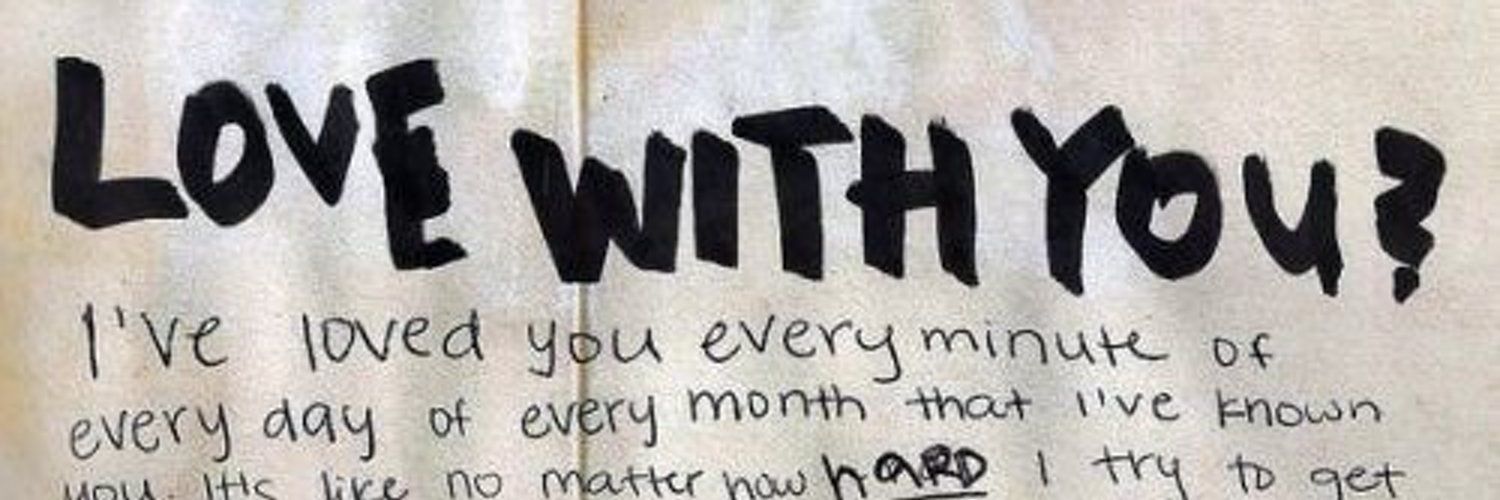 LOVE WITH YOU?
I've loved you every minute of
every day of every month that I've known
you. It's like no matter how hARD I try to get